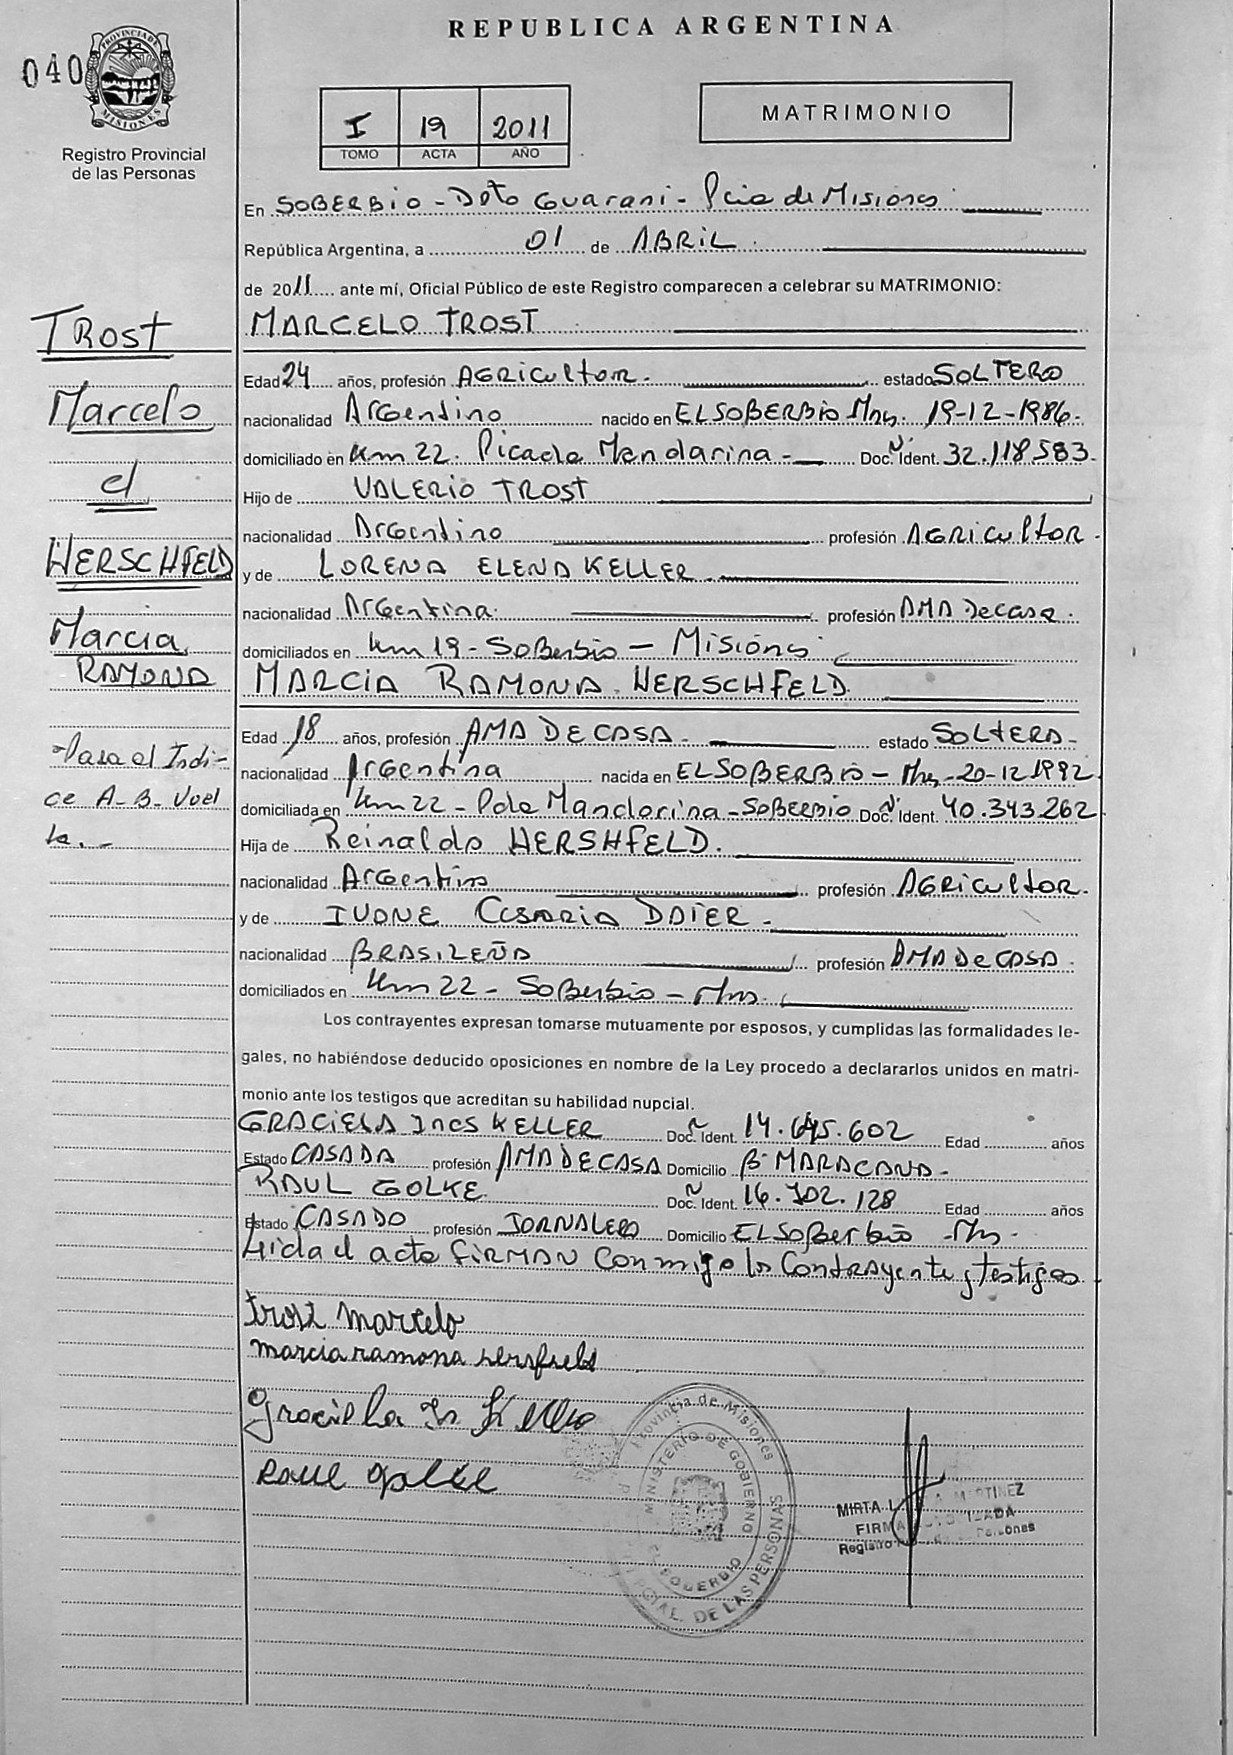 REPUBLICA ARGENTINA
040
PROVINCIA DE MISIONES
Registro Provincial
de las Personas
I 19 2011
TOMO ACTA AÑO
MATRIMONIO
En SOBERBIO - Dpto Guarani - Pcia de Misiones
República Argentina, a 01 de ABRIL
de 2011 ante mí, Oficial Público de este Registro comparecen a celebrar su MATRIMONIO:
MARCELO TROST
Edad 24 años, profesión AGRICULTOR. estado SOLTERO
nacionalidad Argentino nacido en EL SOBERBIO Mns. 19-12-1986.
domiciliado en Km 22. Picada Mandarina - Doc. Ident. 32.118.583.
Hijo de VALERIO TROST
nacionalidad Argentino profesión AGRICULTOR.
y de LORENA ELENA KELLER
nacionalidad Argentina. profesión AMA De casa.
domiciliados en Km 19 - Soberbio - Misiones
MARCIA RAMONA HERSCHFELD
Edad 18 años, profesión AMA DE CASA. estado SOLTERA-
nacionalidad Argentina nacida en EL SOBERBIO - Mns - 20-12 1992
domiciliada en Km 22 - Pda Mandarina - SOBERBIO Doc. Ident. 40.343.262
Hija de Reinaldo HERSHFELD.
nacionalidad Argentino profesión AGRICULTOR.
y de IVONE Cesaria DAIER -
nacionalidad BRASILEÑA profesión AMA De CASA.
domiciliados en Km 22 - Soberbio - Mns.
Los contrayentes expresan tomarse mutuamente por esposos, y cumplidas las formalidades le-
gales, no habiéndose deducido oposiciones en nombre de la Ley procedo a declararlos unidos en matri-
monio ante los testigos que acreditan su habilidad nupcial.
GRACIELA Ines KELLER Doc. Ident. 14.695.602 Edad años
Estado CASADA profesión AMA DE CASA Domicilio Bº MARACANA-
RAUL GOLKE Doc. Ident. 16.302.128 Edad años
Estado CASADO profesión JORNALERO Domicilio EL SOBERBIO - Mns.
Leida el acta FIRMAN Conmigo los Contrayentes y testigos
Trost Marcelo
marcia ramona
Raul Golke
TROST
Marcelo
el
HERSCHFELD
Marcia
RAMONA
-Pasa el Indi-
ce A-B-Vuel
ta.-
Provincia de Misiones
MINISTERIO DE GOBIERNO
EL SOBERBIO
PCIAL. DE LAS PERSONAS
MIRTA MARTINEZ
FIRMA
Registro Personas